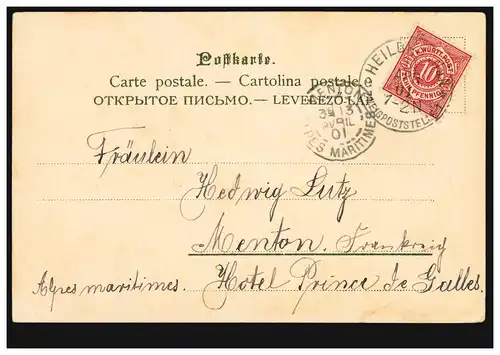 Postkarte.
Carte postale. — Cartolina postale
ОТКРЫТОЕ ПИСЬМО. — LEVELEZŐ-LAP
K. WÜRTT. POST
10
PFENNIG
HEILB
1-2 N
POSTSTEL
MENTON
3E 13
AVRIL
01
ALPES MARITIMES
Fräulein
Hedwig Lutz
Menton. Frankreich
Alpes maritimes. Hotel Prince de Galles.